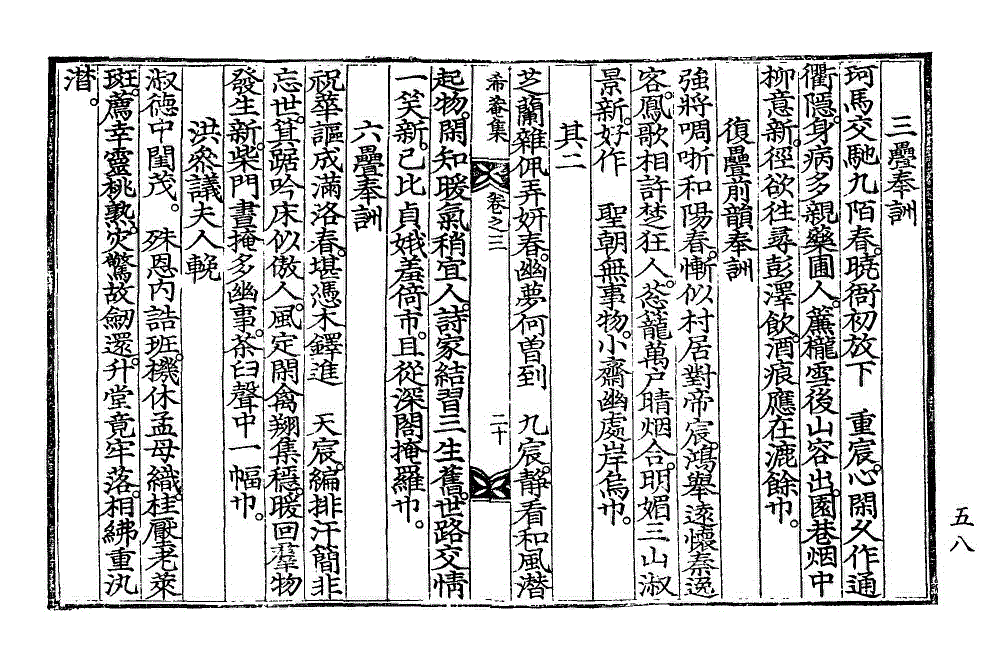 三疊奉訓
珂馬交馳九陌春。曉衙初放下　重宸。心閑久作通
衢隱。身病多親藥圃人。簾櫳雪後山容出。園巷烟中
柳意新。徑欲往尋彭澤飮。酒痕應在漉餘巾。
復疊前韻奉訓
強將啁哳和陽春。慚似村居對帝宸。鴻擧遠懷秦逸
客。鳳歌相許楚狂人。葱籠萬戶晴烟合。明媚三山淑
景新。好作　聖朝無事物。小齋幽處岸烏巾。
其二
芝蘭雜佩弄姸春。幽夢何曾到　九宸。靜看和風潛
希菴集　卷之三　二十
起物。閑知暖氣稍宜人。詩家結習三生舊。世路交情
一笑新。已比貞娥羞倚市。且從深閤掩羅巾。
六疊奉訓
祝華謳成滿洛春。堪憑木鐸進　天宸。編排汗簡非
忘世。箕踞吟床似傲人。風定閑禽翔集穩。暖回羣物
發生新。柴門晝掩多幽事。茶臼聲中一幅巾。
洪叅議夫人輓
淑德中閨茂。　殊恩內誥班。機休孟母織。桂厭老萊
斑。薦幸靈桃熟。灾驚故劒還。升堂竟牢落。相紼重汍
潸。
五八